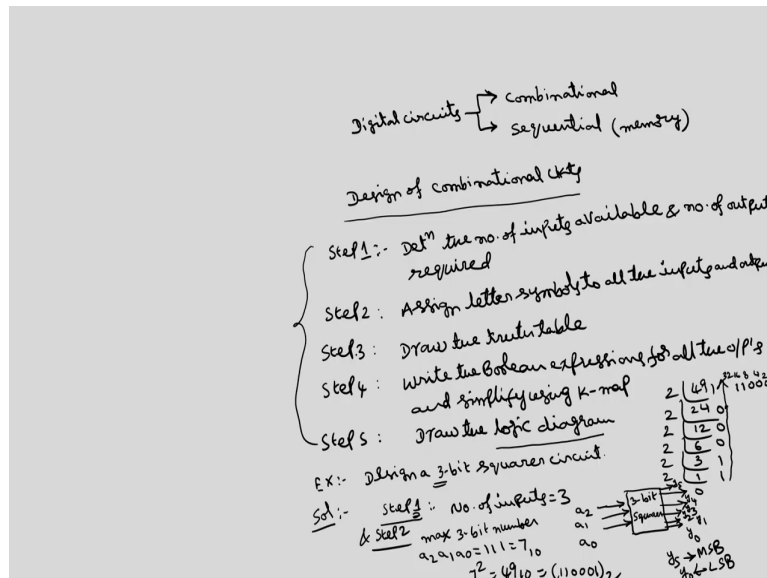 Digital circuits → combinational
→ sequential (memory)
Design of combinational ckts
Step 1:- Detⁿ the no. of inputs available & no. of output
required
Step 2: Assign letter symbols to all the inputs and outpu
Step 3: Draw the truth table
Step 4: Write the Boolean expressions for all the o/p's
and simplify using K-map
Step 5: Draw the logic diagram
2 49 1
2 24 0
2 12 0
2 6 0
2 3 1
2 1 1
0
Ex:- Design a 3-bit squarer circuit.
Sol:- Step 1: No. of inputs = 3
& Step 2 max 3-bit number
a2 a1 a0 = 111 = 7₁₀
7² = 49₁₀ = (110001)₂
a2
a1
a0
3-bit
squarer
y5
y4
y3
y2
y1
y0
y5 → MSB
y0 ← LSB